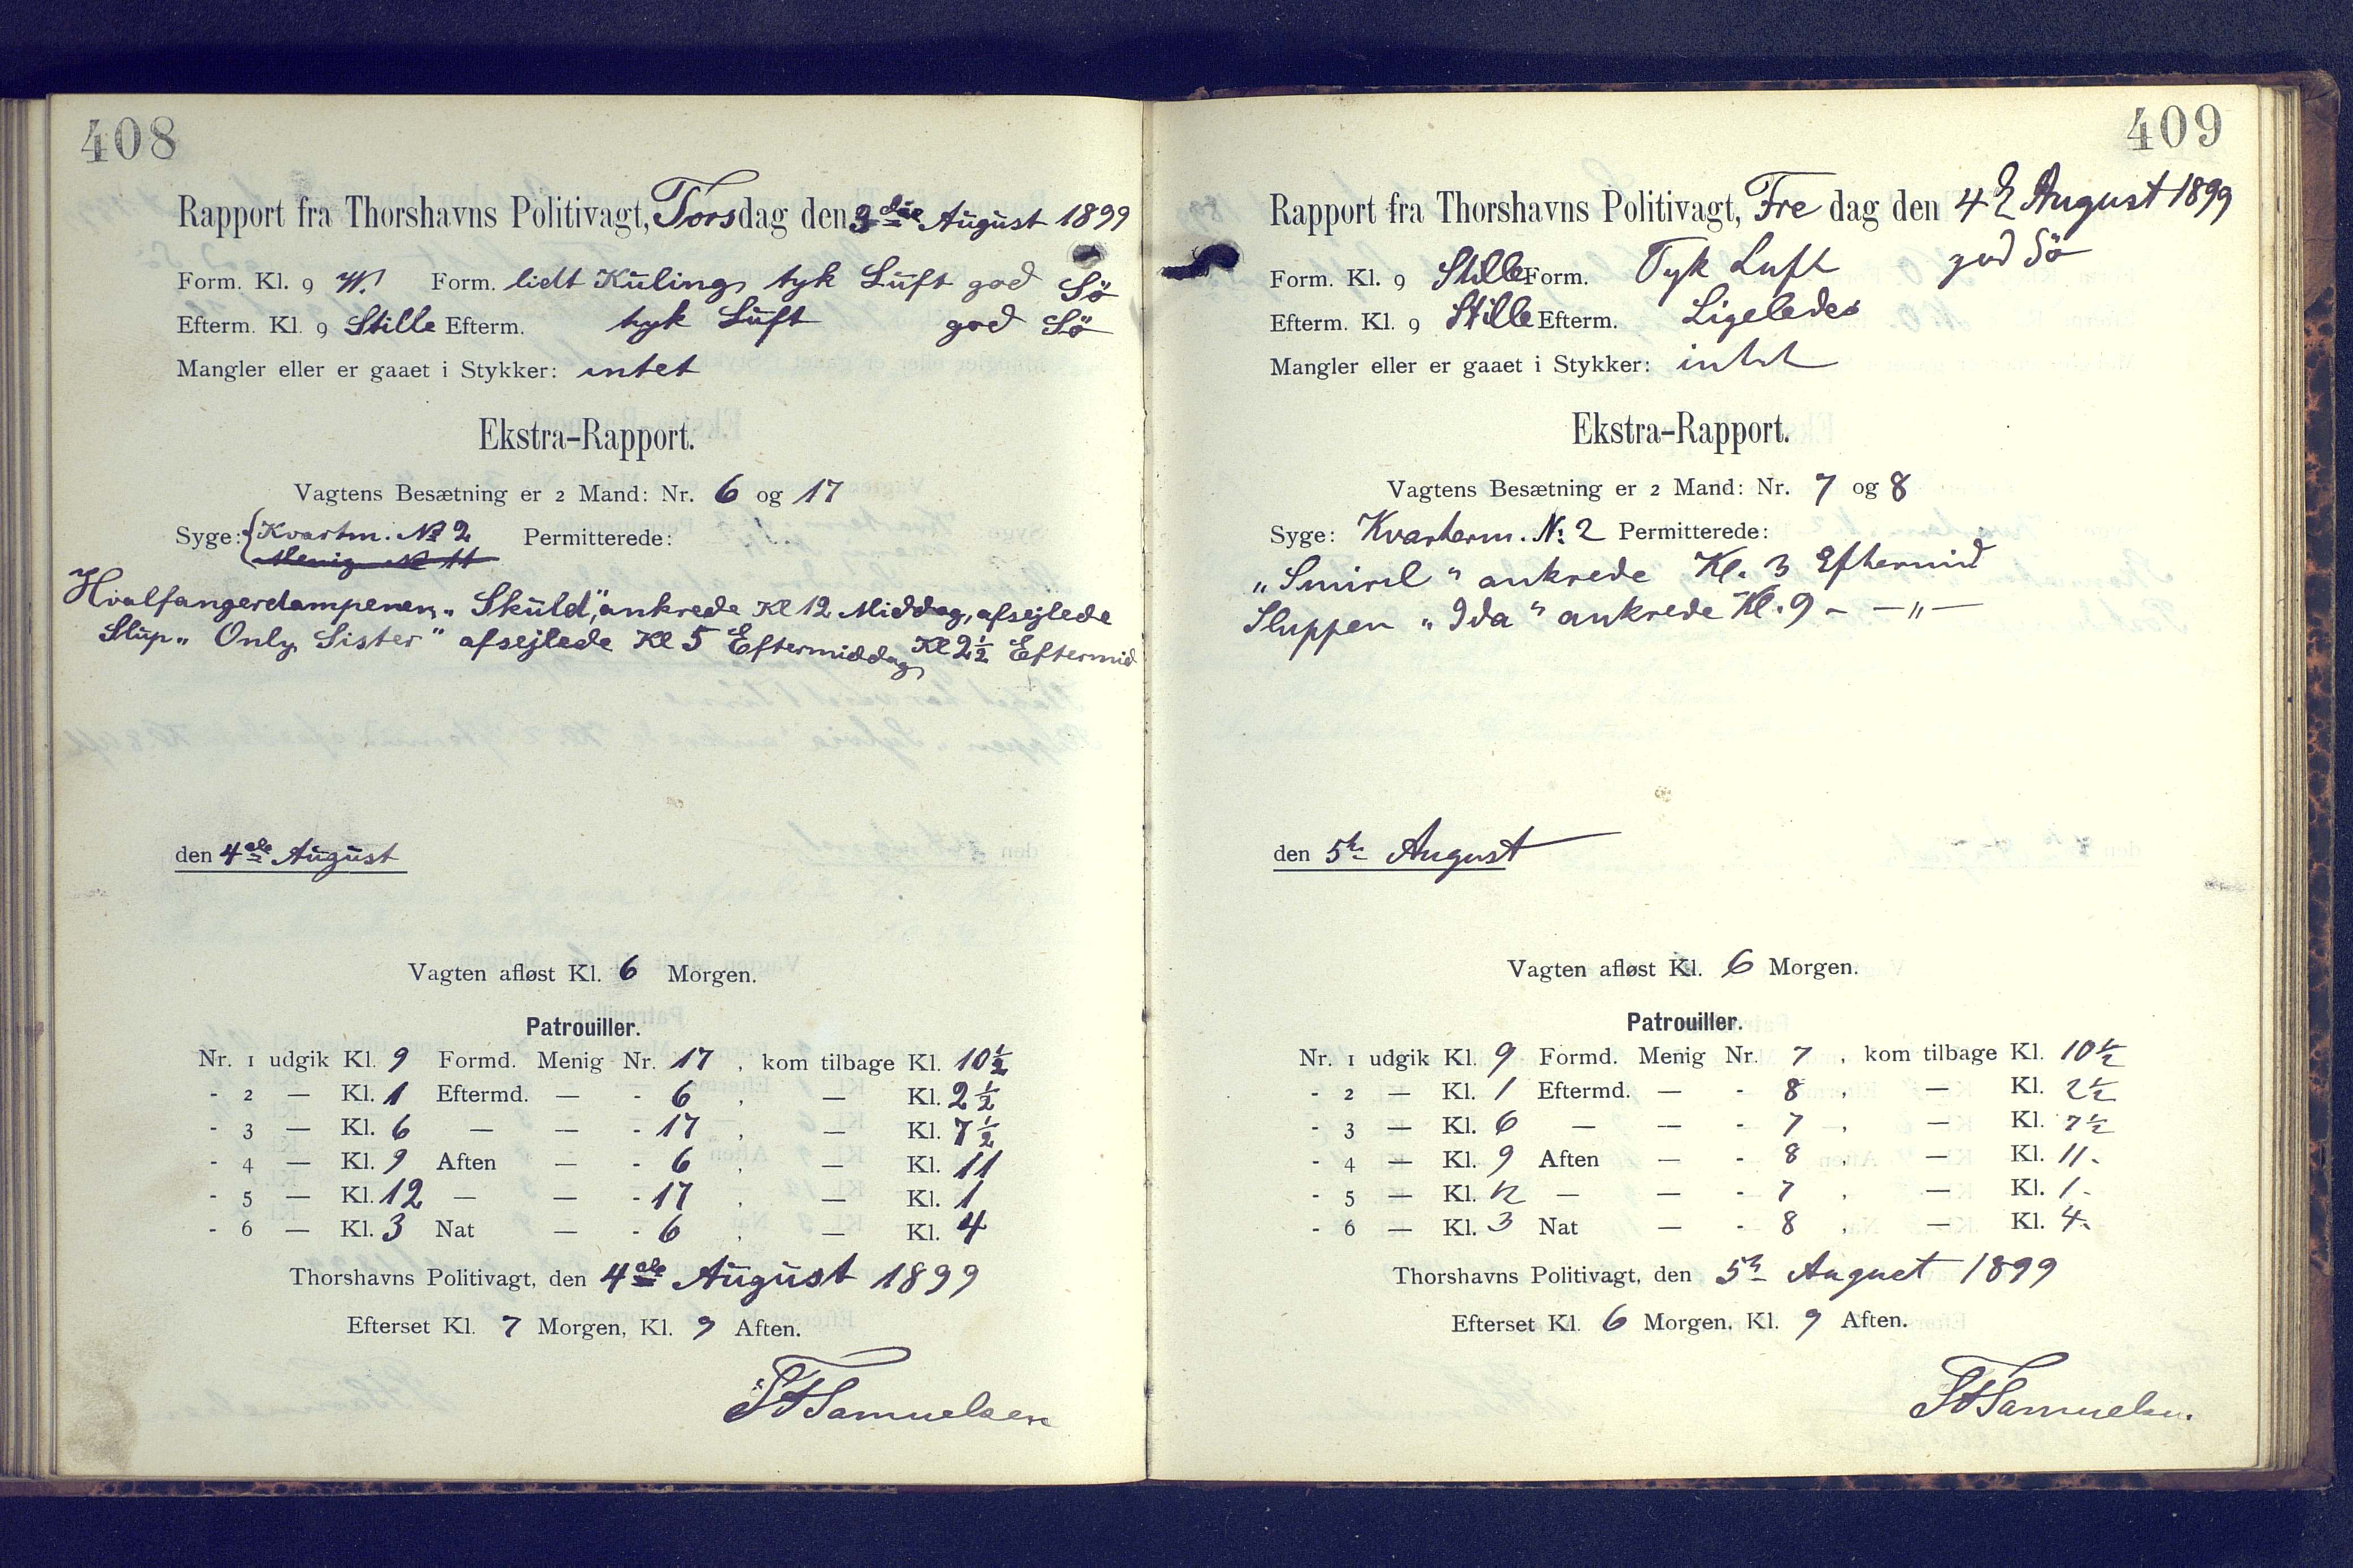 408
Rapport fra Thorshavns Politivagt, Torsdag den 3die August 1899
Form. Kl. 9 W. Form. lidt Kuling, tyk Luft god Sö
Efterm. Kl. 9 Stille Efterm. tyk Luft god Sö
Mangler eller er gaaet i Stykker: intet
Ekstra-Rapport.
Vagtens Besætning er 2 Mand: Nr. 6 og 17
Syge: Kvartm. No 2 Permitterede:
Menig No 11
Hvalfangerdamperen „Skuld", ankrede Kl 12 Middag, afsejlede
Kl 2½ Eftermid
Slup „Only Sister" afsejlede Kl 5 Eftermiddag
den 4de August
Vagten afløst Kl. 6 Morgen.
Patrouiller.
Nr. 1 udgik Kl. 9 Formd. Menig Nr. 17, kom tilbage Kl. 10½
- 2 — Kl. 1 Eftermd. — - 6, — Kl. 2½
- 3 — Kl. 6 — — - 17, — Kl. 7½
- 4 — Kl. 9 Aften — - 6, — Kl. 11
- 5 — Kl. 12 — — - 17, — Kl. 1
- 6 — Kl. 3 Nat — - 6, — Kl. 4
Thorshavns Politivagt, den 4de August 1899
Efterset Kl. 7 Morgen, Kl. 9 Aften.
Samuelsen
409
Rapport fra Thorshavns Politivagt, Fredag den 4 August 1899
Form. Kl. 9 Stille Form. Tyk Luft god Sö
Efterm. Kl. 9 Stille Efterm. Ligeledes
Mangler eller er gaaet i Stykker: intet
Ekstra-Rapport.
Vagtens Besætning er 2 Mand: Nr. 7 og 8
Syge: Kvarterm. No 2 Permitterede:
„Smiril" ankrede Kl. 3 Eftermid
Sluppen „Ida" ankrede Kl. 9 — — „ —
den 5te August
Vagten afløst Kl. 6 Morgen.
Patrouiller.
Nr. 1 udgik Kl. 9 Formd. Menig Nr. 7, kom tilbage Kl. 10½
- 2 — Kl. 1 Eftermd. — - 8, — Kl. 2½
- 3 — Kl. 6 — — - 7, — Kl. 7½
- 4 — Kl. 9 Aften — - 8, — Kl. 11.
- 5 — Kl. 12 — — - 7, — Kl. 1.
- 6 — Kl. 3 Nat — - 8, — Kl. 4.
Thorshavns Politivagt, den 5te August 1899
Efterset Kl. 6 Morgen, Kl. 9 Aften.
Samuelsen.